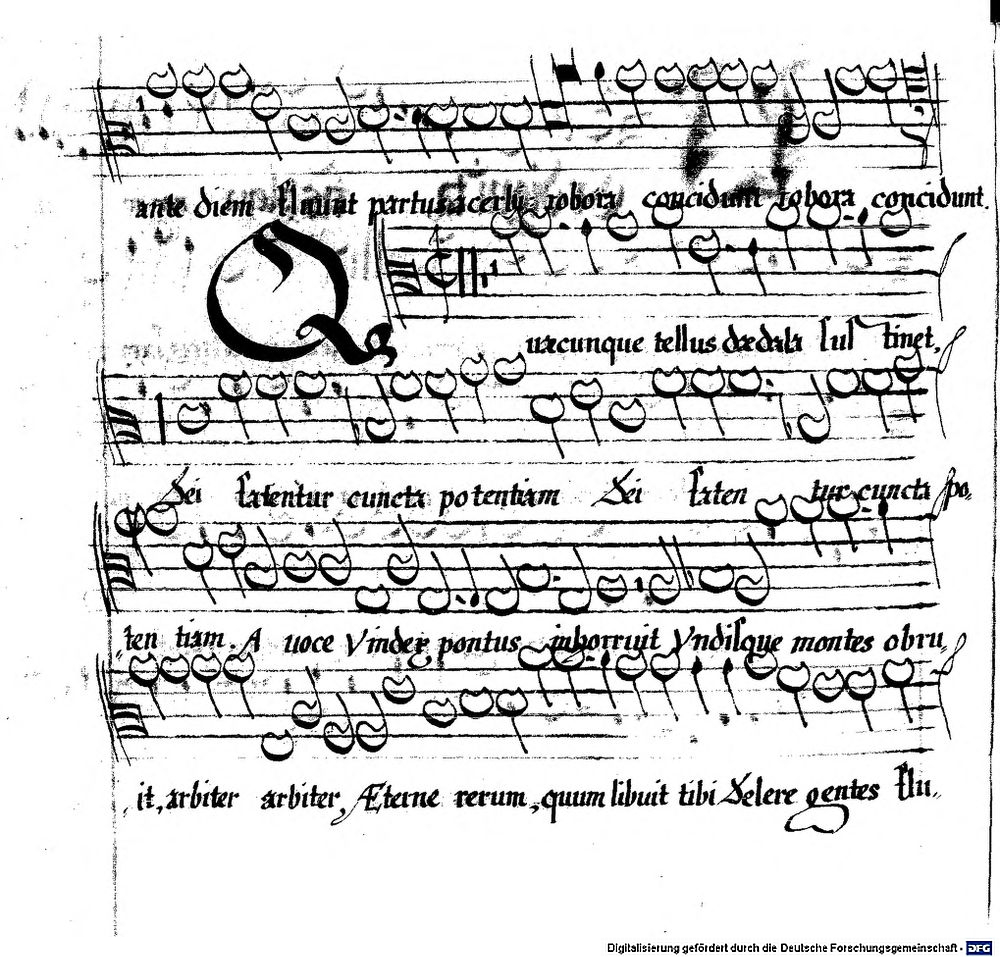 ante diem fluunt partus acerbi robora concidunt robora concidunt.
Quæcunque tellus dædala sustinet,
Dei fatentur cuncta potentiam Dei faten tur cuncta po,,
,,ten tiam. A uoce Vindex pontus inhorruit Vndisque montes obru,,
,,it, arbiter arbiter, Æterne rerum, quum libuit tibi Delere gentes
Digitalisierung gefördert durch die Deutsche Forschungsgemeinschaft - DFG